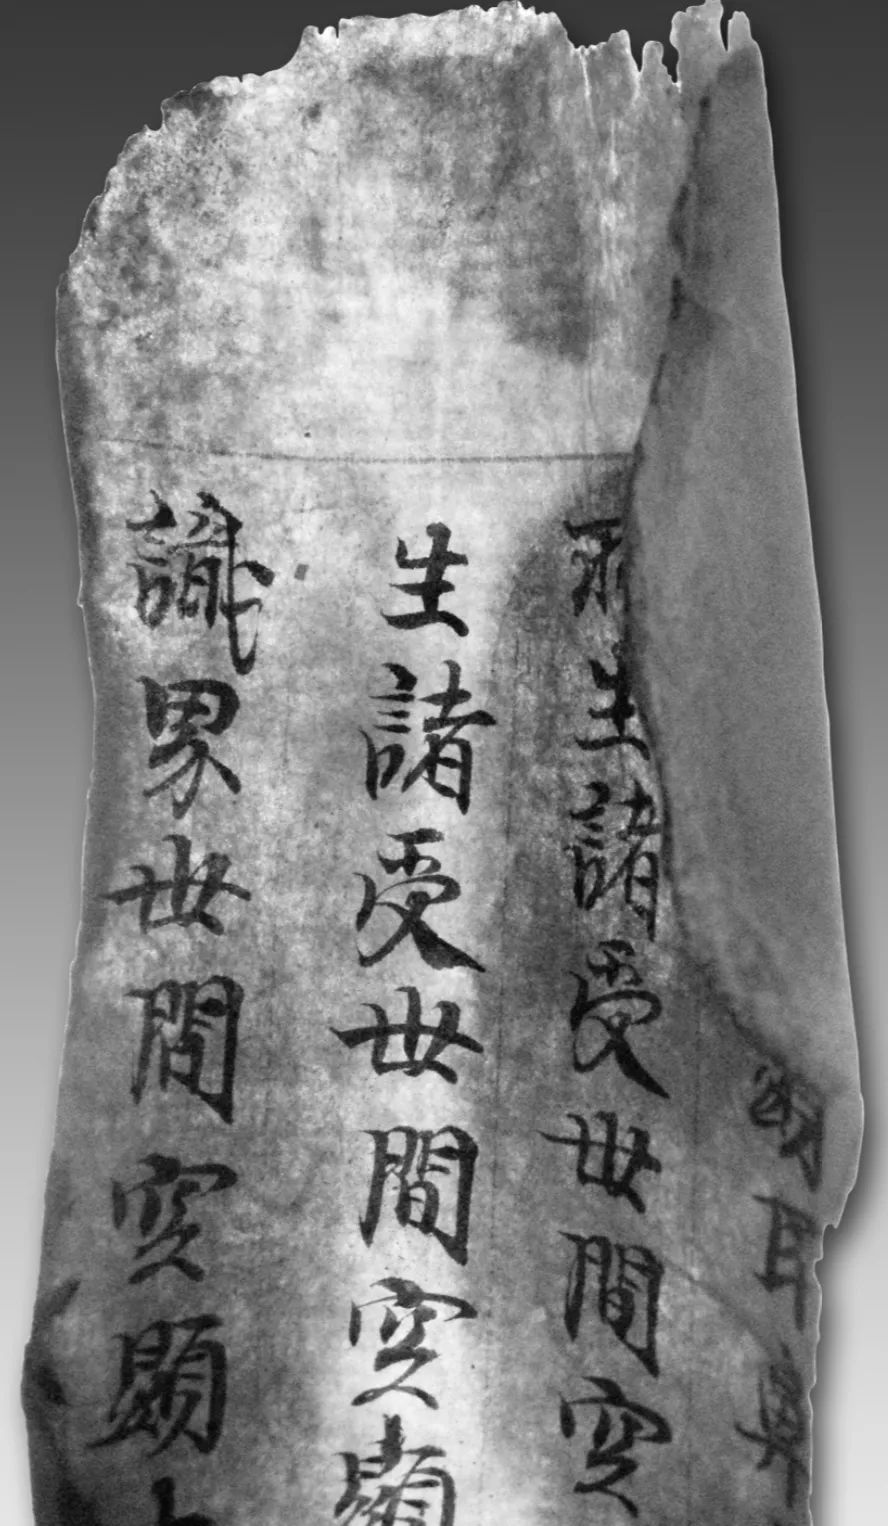 顯耳鼻
所生諸受世間空
生諸受世間空顯
識界世間空顯